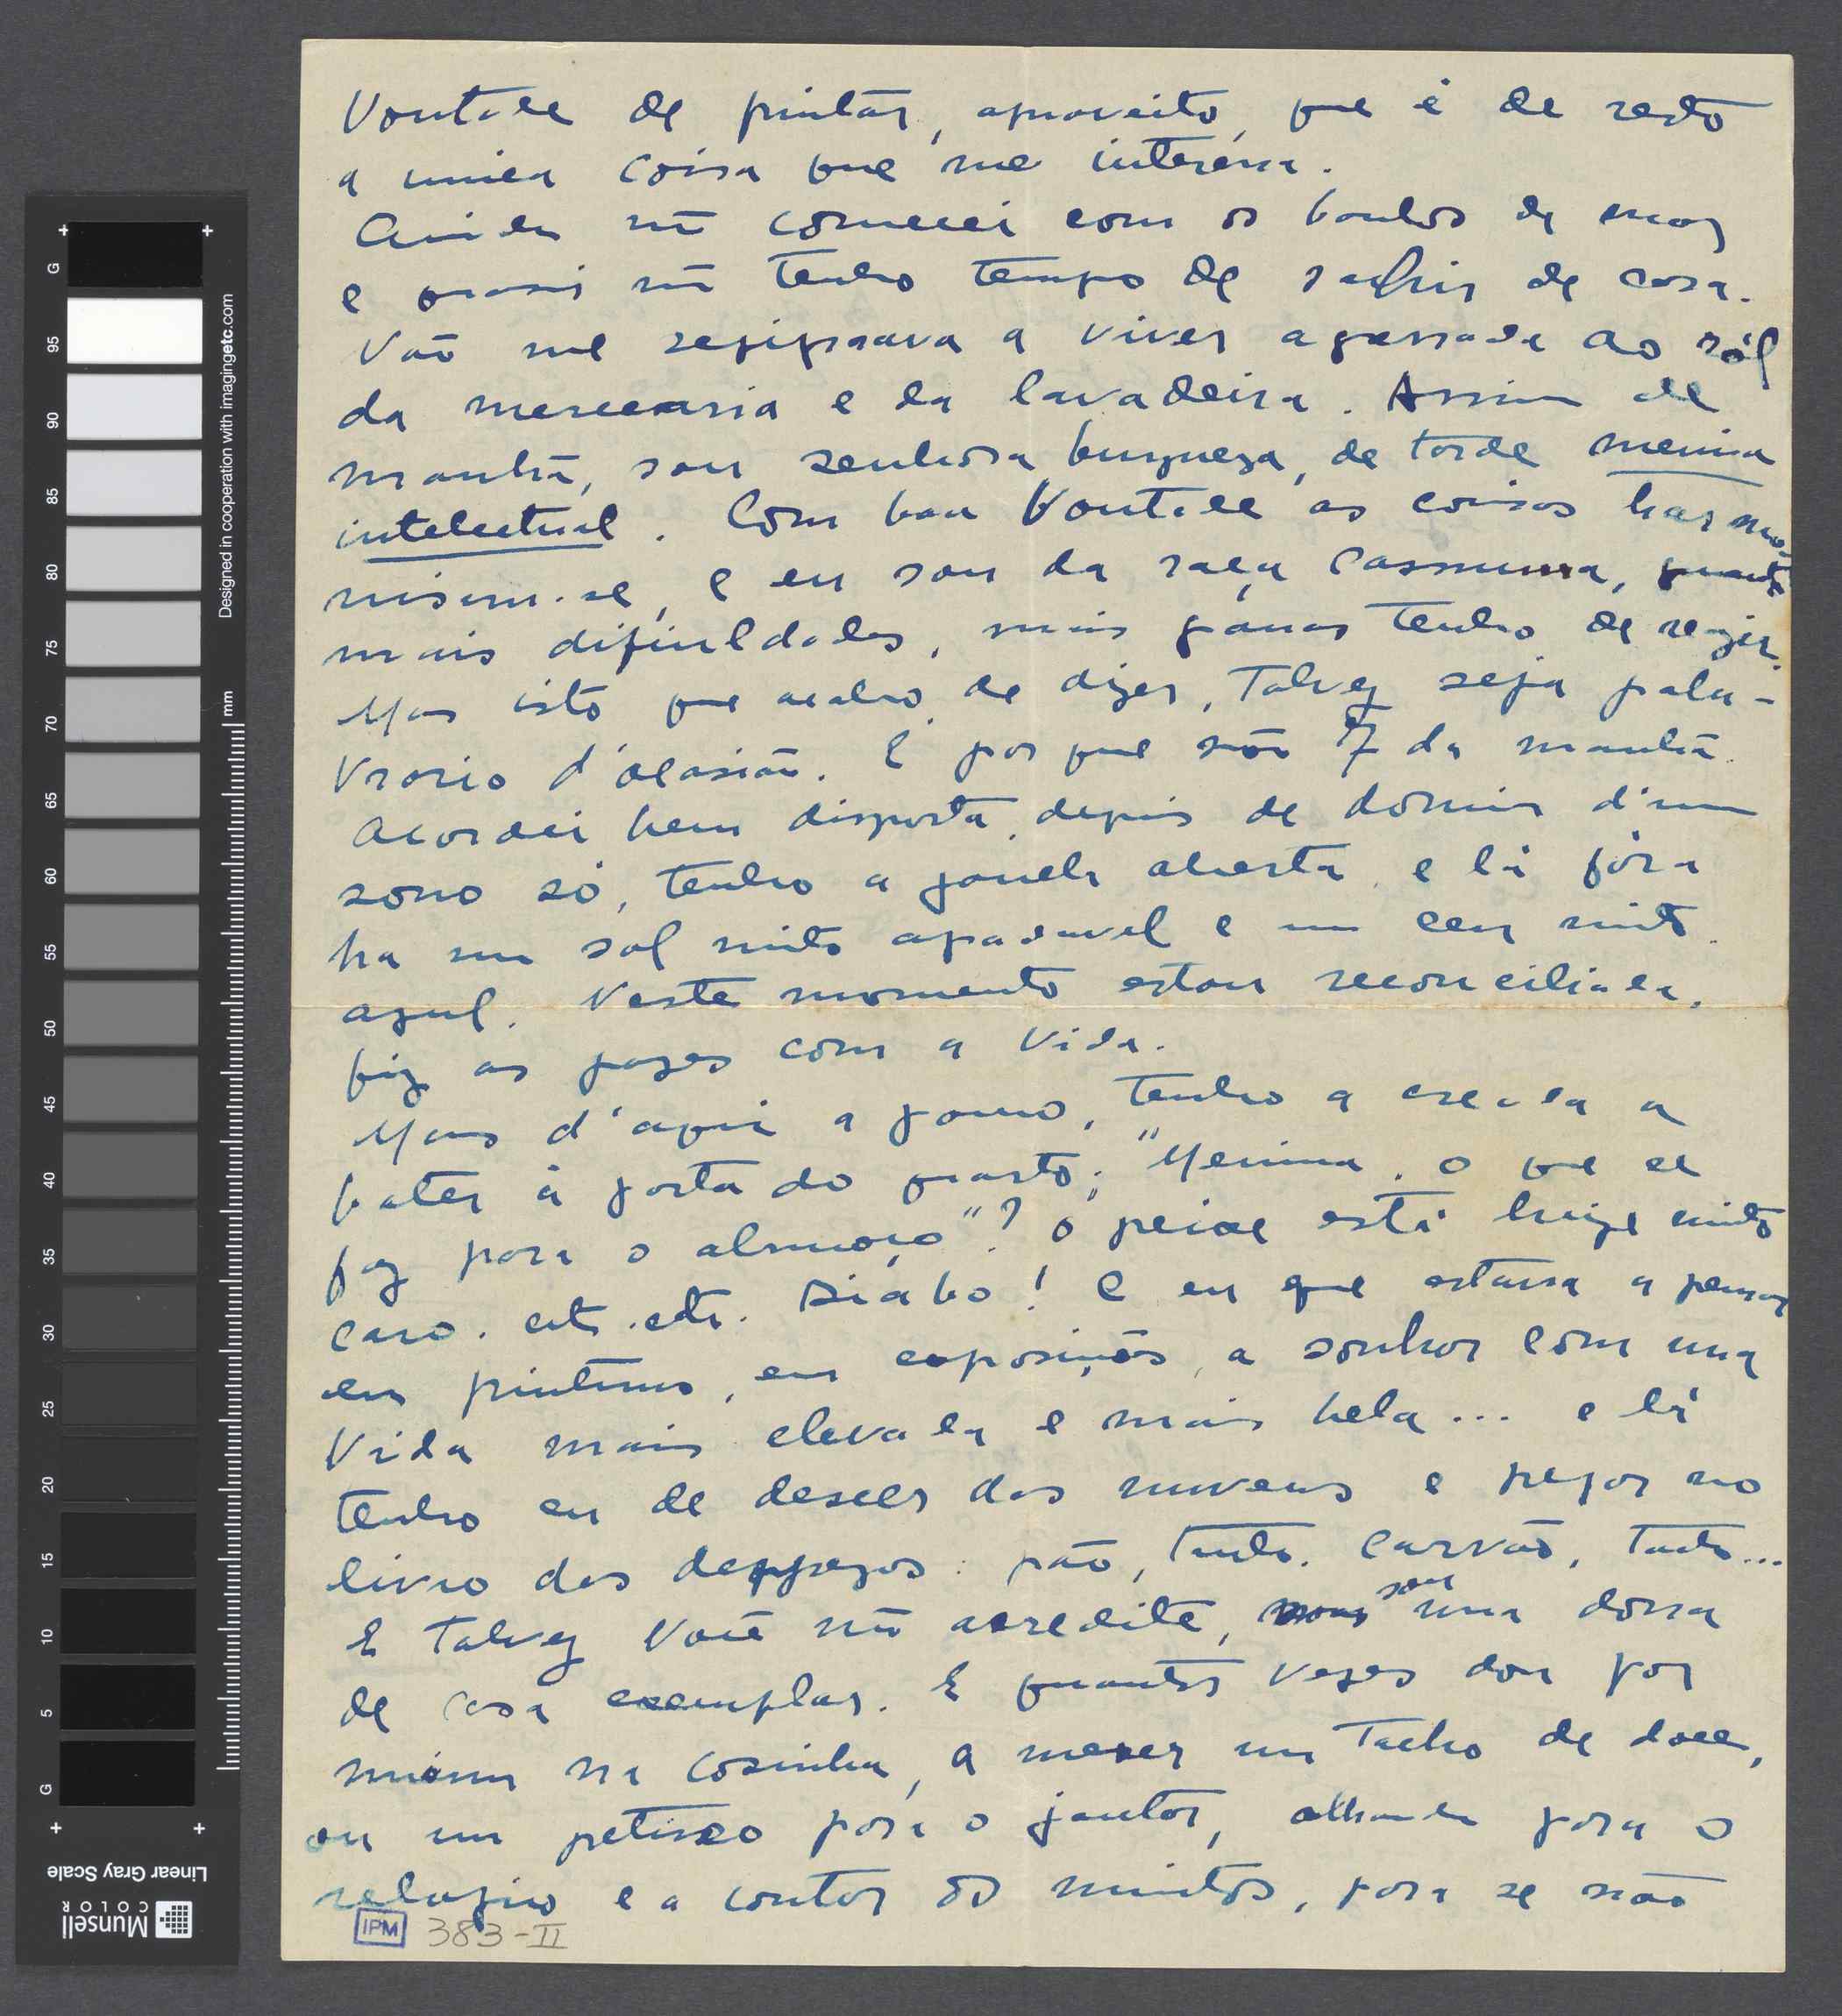 Vontade de pintar, aproveito, que é de resto
a unica coisa que me interessa.
Ainda nã comecei com os banhos de mar
e quasi nã tenho tempo de sahir de casa.
Não me resignava a viver agarrada ao ról
da mercearia e da lavadeira. Assim de
manhã, sou senhora burgueza, de tarde menina
intelectual. Com boa Vontade as coisas harmo-
nisam-se, e eu sou da raça casmurra, quanto
mais dificuldades, mais ganas tenho de reagir.
Mas isto que acabo de dizer, Talvez seja pala-
vrorio d'ocasião. É por que são 7 da manhã.
Acordei bem disposta, depois de dormir d'um
sono só, tenho a janela aberta, e lá fóra
ha um sol muito agradavel e um ceu muito
azul. Neste momento estou reconciliada,
fiz as pazes com a vida.
Mas d'aqui a pouco, tenho a creada a
bater á porta do quarto; "Menina, o que se
faz para o almoço"? O peixe está hoje muito
caro. etc. etc. Diabo! E eu que estava a pensar
em pinturas, em exposições, a sonhar com uma
Vida mais elevada e mais bela... e lá
tenho eu de descer das nuvens e pegar no
livro das despezas: pão, tanto. Carvão, tanto...
E talvez Você nã acredite, sou uma dona
de casa exemplar. E quantas vezes dou por
mim na cosinha, a mexer um tacho de doce,
ou um petisco para o jantar, olhando para o
relogio e a contar os minutos, para se não
IPM 383-II
Designed in cooperation with imagingetc.com
mm
G 95 90 85 80 75 70 65 60 55 50 45 40 35 30 25 20 15 10 5 G
Linear Gray Scale
Munsell
COLOR